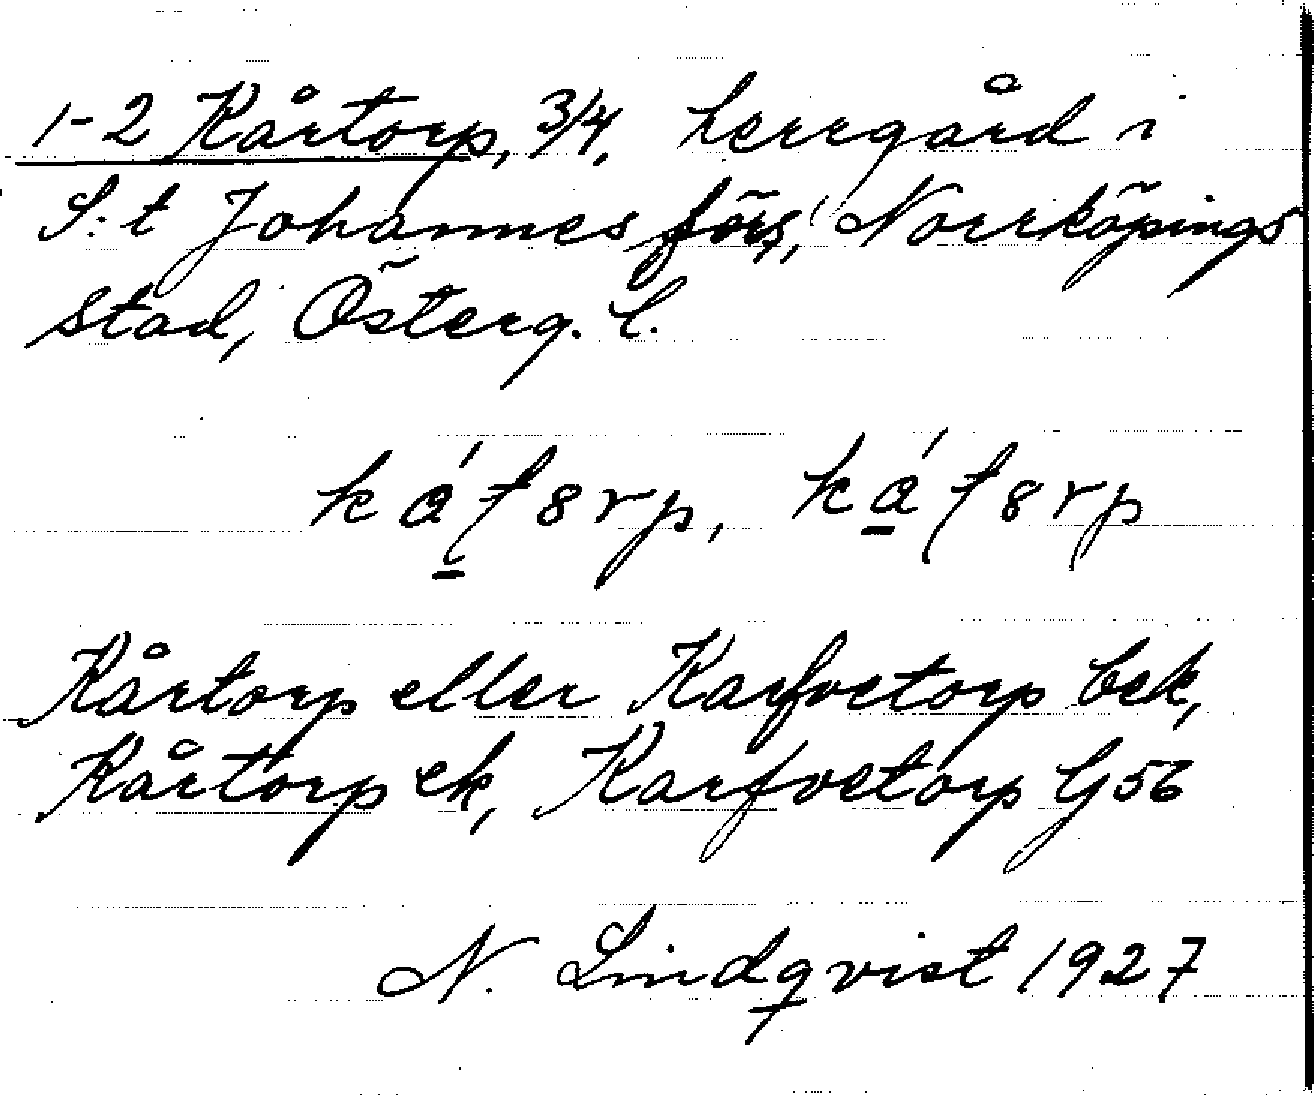 1-2 Kårtorp, 3/4, herrgård i
S:t Johannes förs, Norrköpings
stad, Österg. l.
Kårtorp eller Karfvetorp bek,
Kårtorp ek, Karfvetorp G 56
N. Lindqvist 1927